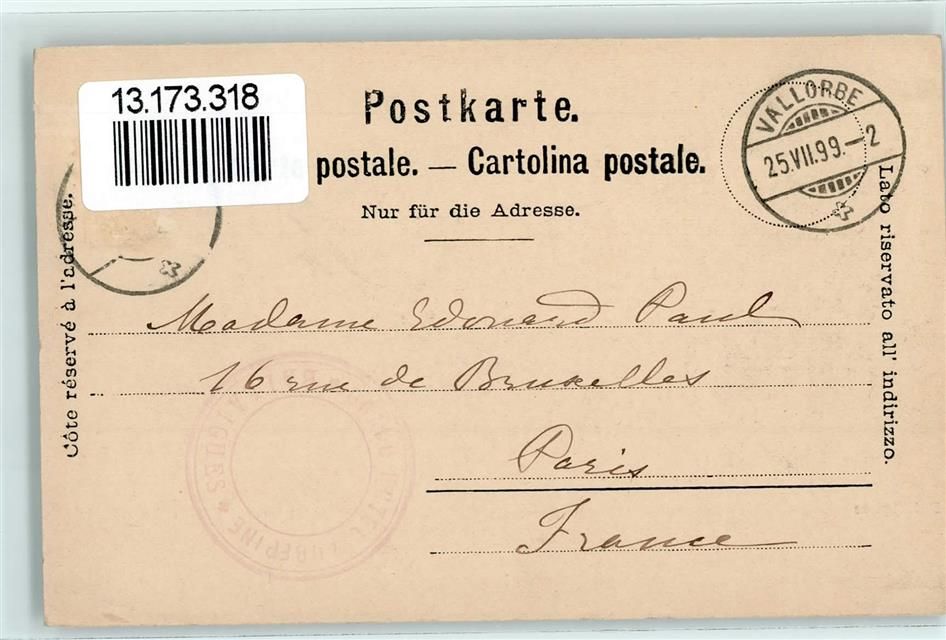 13.173.318
Postkarte.
postale. — Cartolina postale.
Nur für die Adresse.
VALLORBE
25.VII.99.–2
Côte réservé à l'adresse.
Lato riservato all' indirizzo.
Madame Edouard Paul
16 rue de Bruxelles
Paris
France